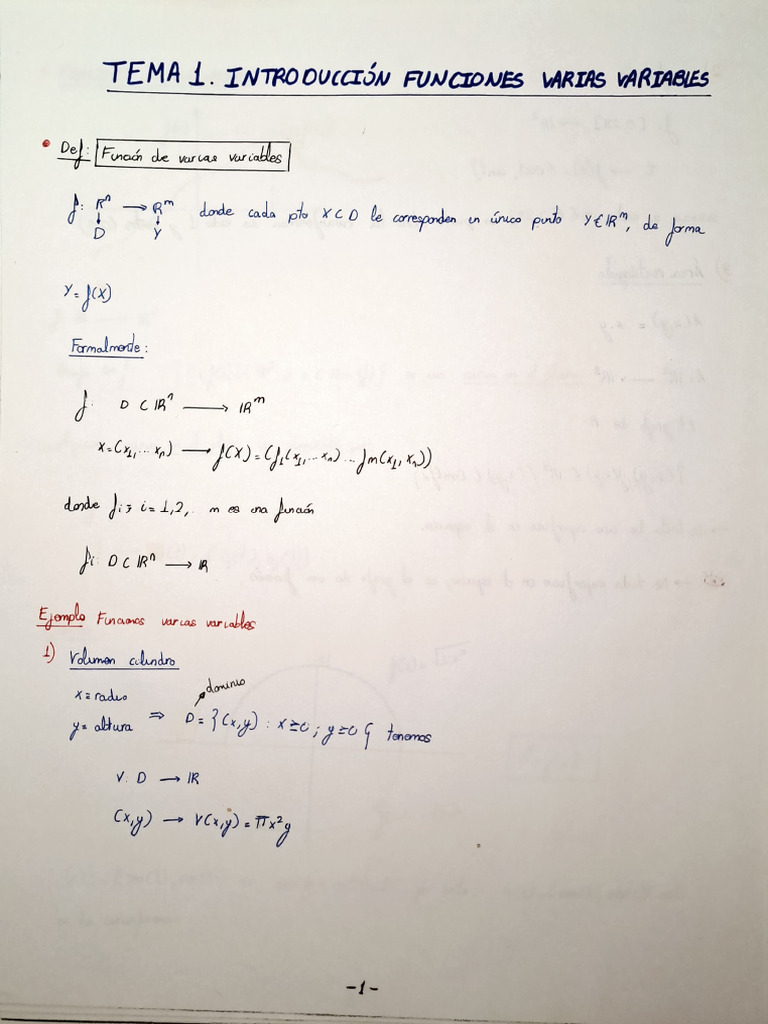 TEMA 1. INTRODUCCIÓN FUNCIONES VARIAS VARIABLES
• Def: Función de varias variables
f: ℝⁿ → ℝᵐ donde cada pto X ⊂ D le corresponden un único punto Y ∈ ℝᵐ, de forma
↓ ↓
D Y
Y = f(X)
Formalmente:
f: D ⊂ ℝⁿ → ℝᵐ
X = (x₁, ... xₙ) → f(X) = (f₁(x₁, ... xₙ) ... fm(x₁, xₙ))
donde fi ; i = 1, 2, .. m es una función
fi: D ⊂ ℝⁿ → ℝ
Ejemplo Funciones varias variables
1) Volumen cilindro
dominio
x ≡ radio
y = altura ⇒ D = {(x,y) : x ≥ 0 ; y ≥ 0} tenemos
V: D → ℝ
(x,y) → V(x,y) = πx²y
-1-